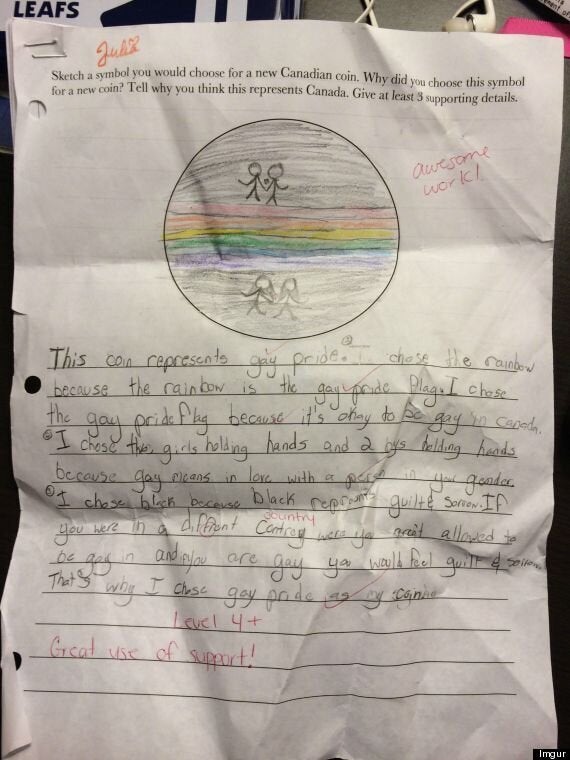 LEAFS
Sketch a symbol you would choose for a new Canadian coin. Why did you choose this symbol
for a new coin? Tell why you think this represents Canada. Give at least 3 supporting details.
awesome
work!
This coin represents gay pride. I chose the rainbow
because the rainbow is the gay pride flag. I chose
the gay pride flag because it's okay to be gay in canada.
I chose two girls holding hands and 2 boys holding hands
because gay means in love with a person in your gender.
I chose black because black represents guilt & sorrow. If
country
you were in a diffrent were you aren't allowed to
be gay in and you are gay you would feel guilt & sorrow.
That's why I chose gay pride as my
Level 4+
Great use of support!
Imgur